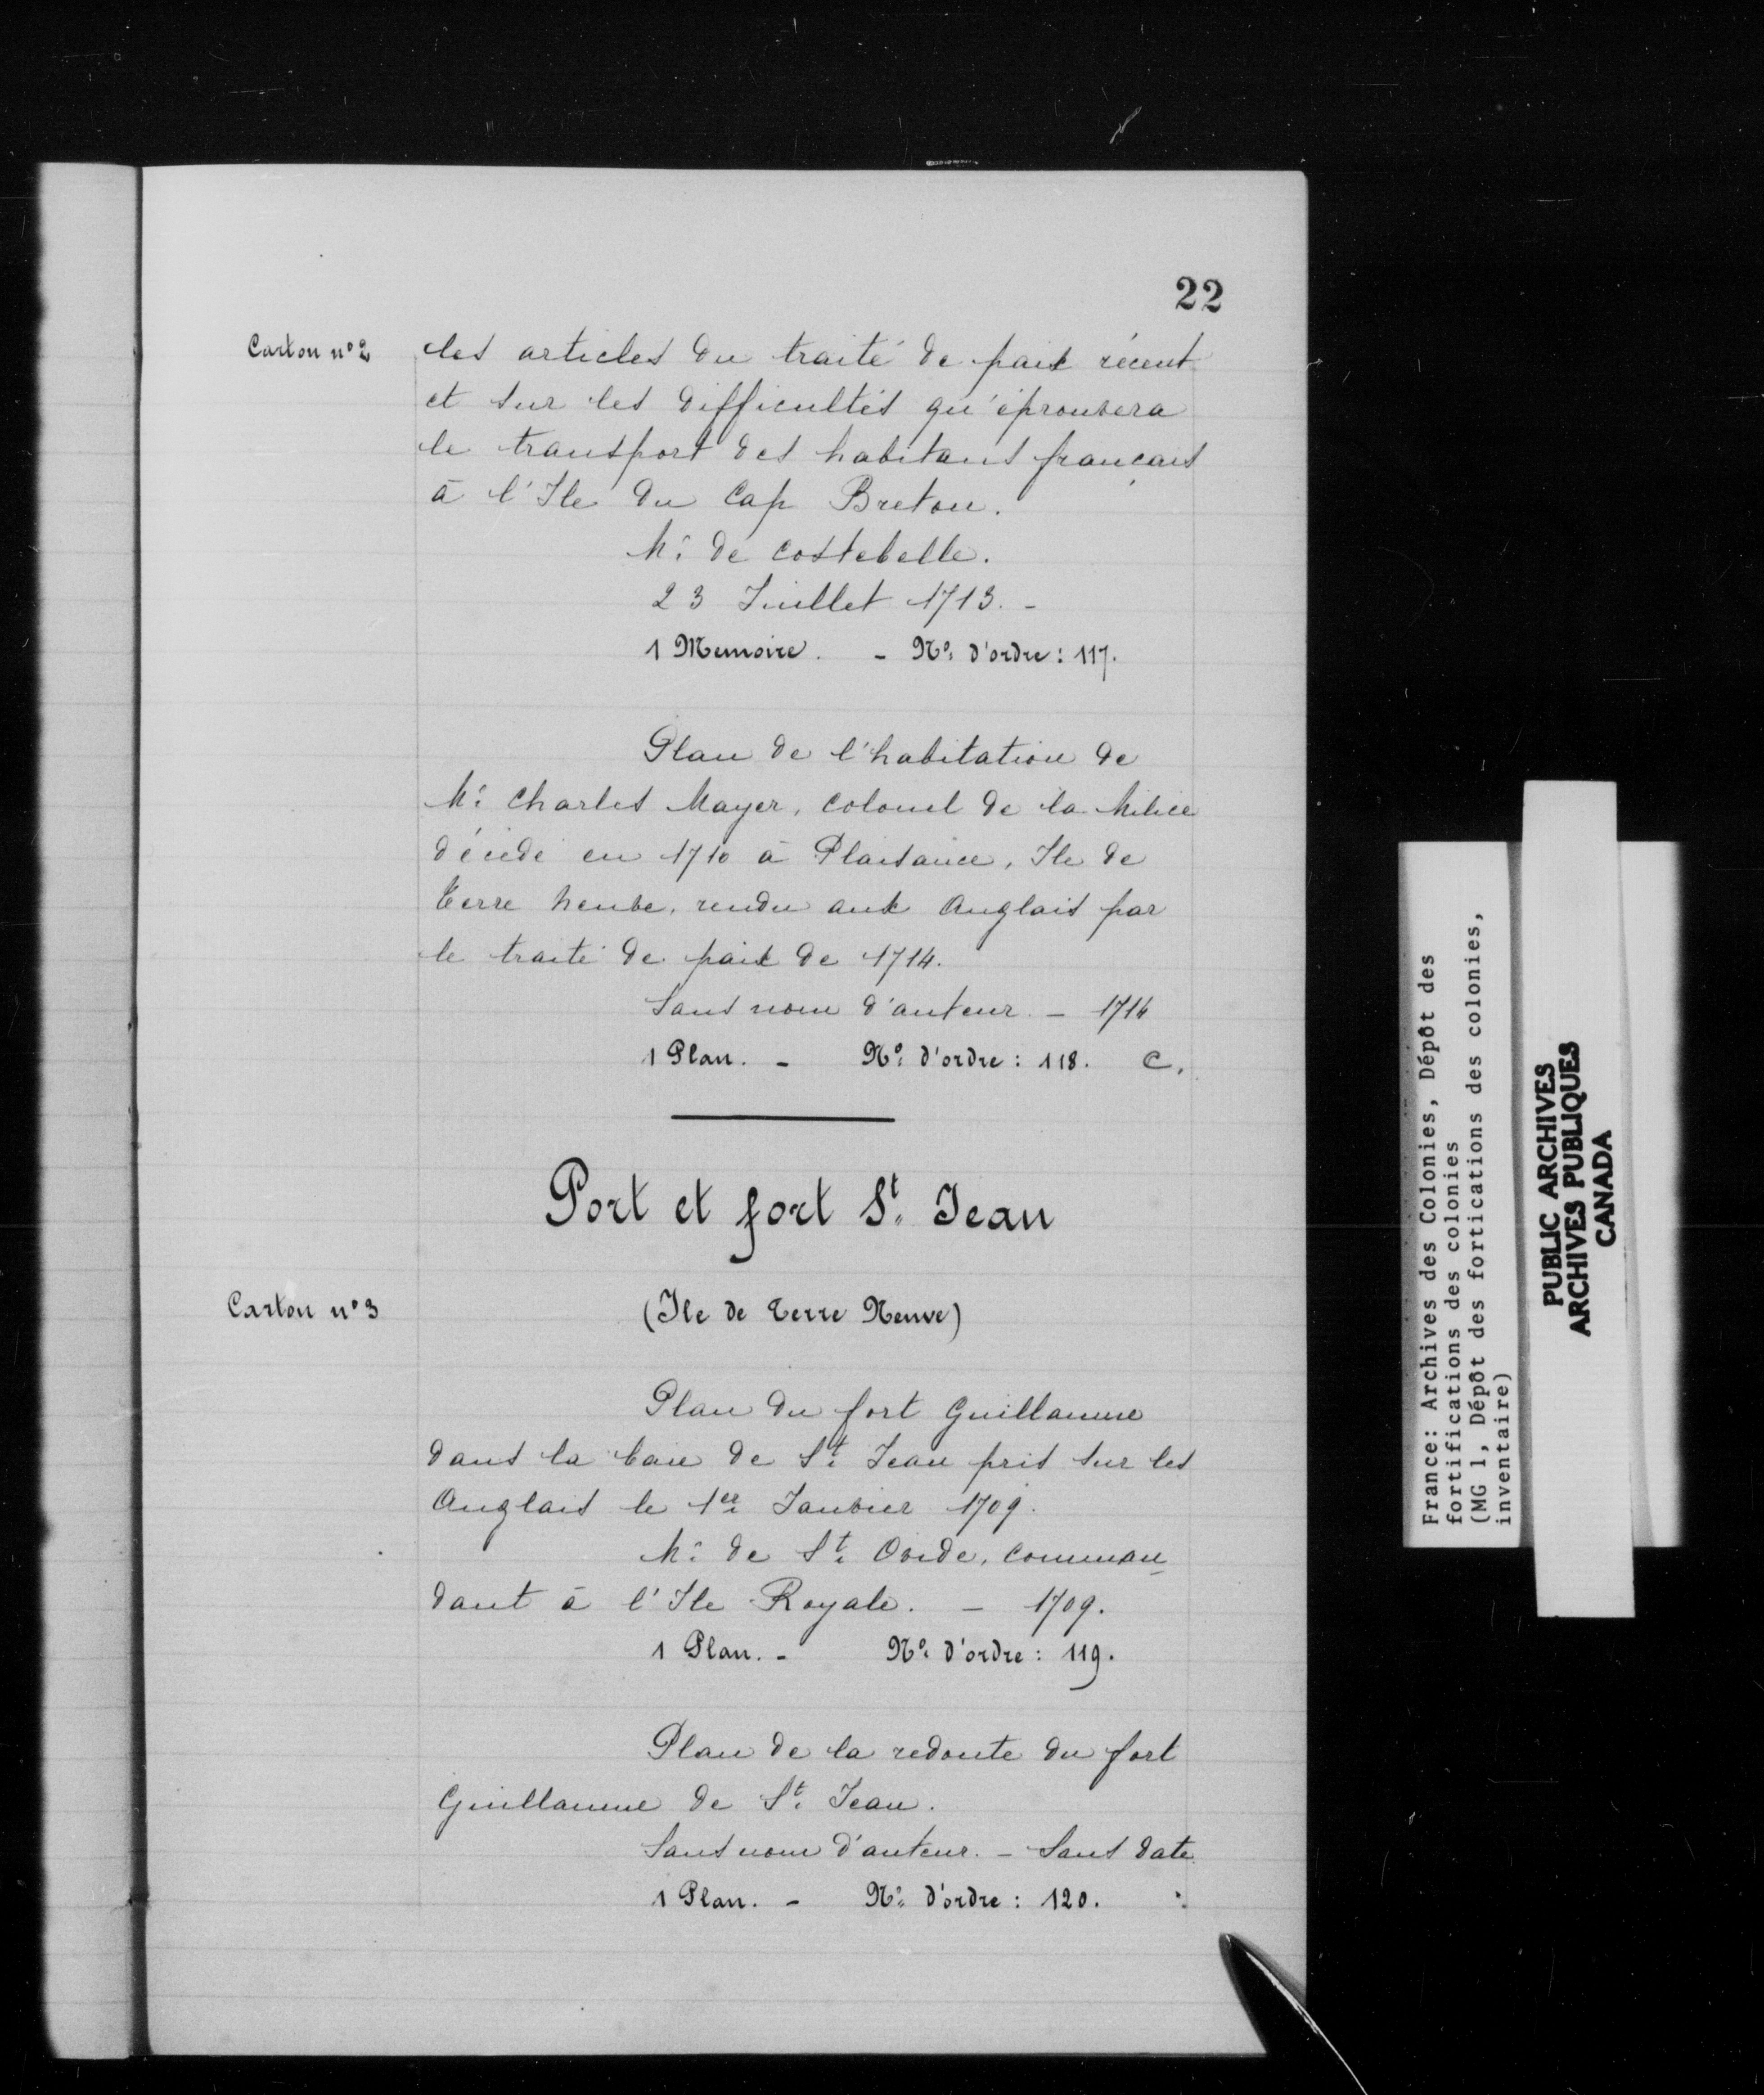 22
Carton nº 2
les articles du traité de paix récent
et sur les difficultés qu'éprouvera
le transport des habitans français
à l'Ile du Cap Breton.
Mr. de Costebelle.
23 Juillet 1713. -
1 Memoire. - Nº d'ordre : 117.
Plan de l'habitation de
Mr. Charles Mayer, Colonel de la Milice
décédé en 1710 à Plaisance, Ile de
Terre Neuve, rendu aux Anglais par
le traité de paix de 1714.
Sans nom d'auteur. - 1714
1 Plan. - Nº d'ordre : 118. C.
Port et fort St. Jean
Carton nº 3
(Ile de Terre Neuve)
Plan du fort Guillaume
dans la baie de St. Jean pris sur les
Anglais le 1er Janvier 1709.
Mr. de St. Ovide, comman
dant à l'Ile Royale. - 1709.
1 Plan. - Nº d'ordre : 119.
Plan de la redoute du fort
Guillaume de St. Jean.
Sans nom d'auteur. - Sans date
1 Plan. - Nº d'ordre : 120.
France: Archives des Colonies, Dépôt des
fortifications des colonies
(MG 1, Dépôt des fortications des colonies,
inventaire)
PUBLIC ARCHIVES
ARCHIVES PUBLIQUES
CANADA